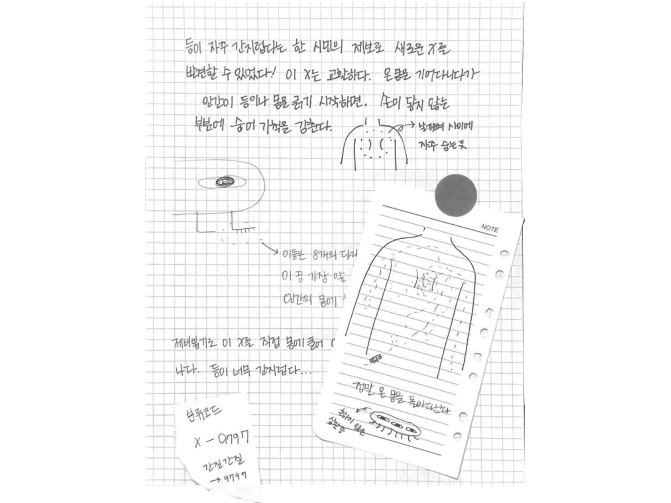 등이 자꾸 간지럽다는 한 시민의 제보로 새로운 X를
발견할 수 있었다! 이 X는 교활하다. 온몸을 기어다니다가
인간이 등이나 몸을 긁기 시작하면, 손이 닿지 않는
부분에 숨어 가려움을 감춘다.
날개뼈 사이에
자주 숨는 듯
이들은 8개의 다리
이 중 가장
인간의 몸에
제비뽑기로 이 X를 직접 몸에 풀어
나다. 등이 너무 간지럽다...
분류코드
X-0797
간질간질
→9797
NOTE
정말 온 몸을 돌아다닌다